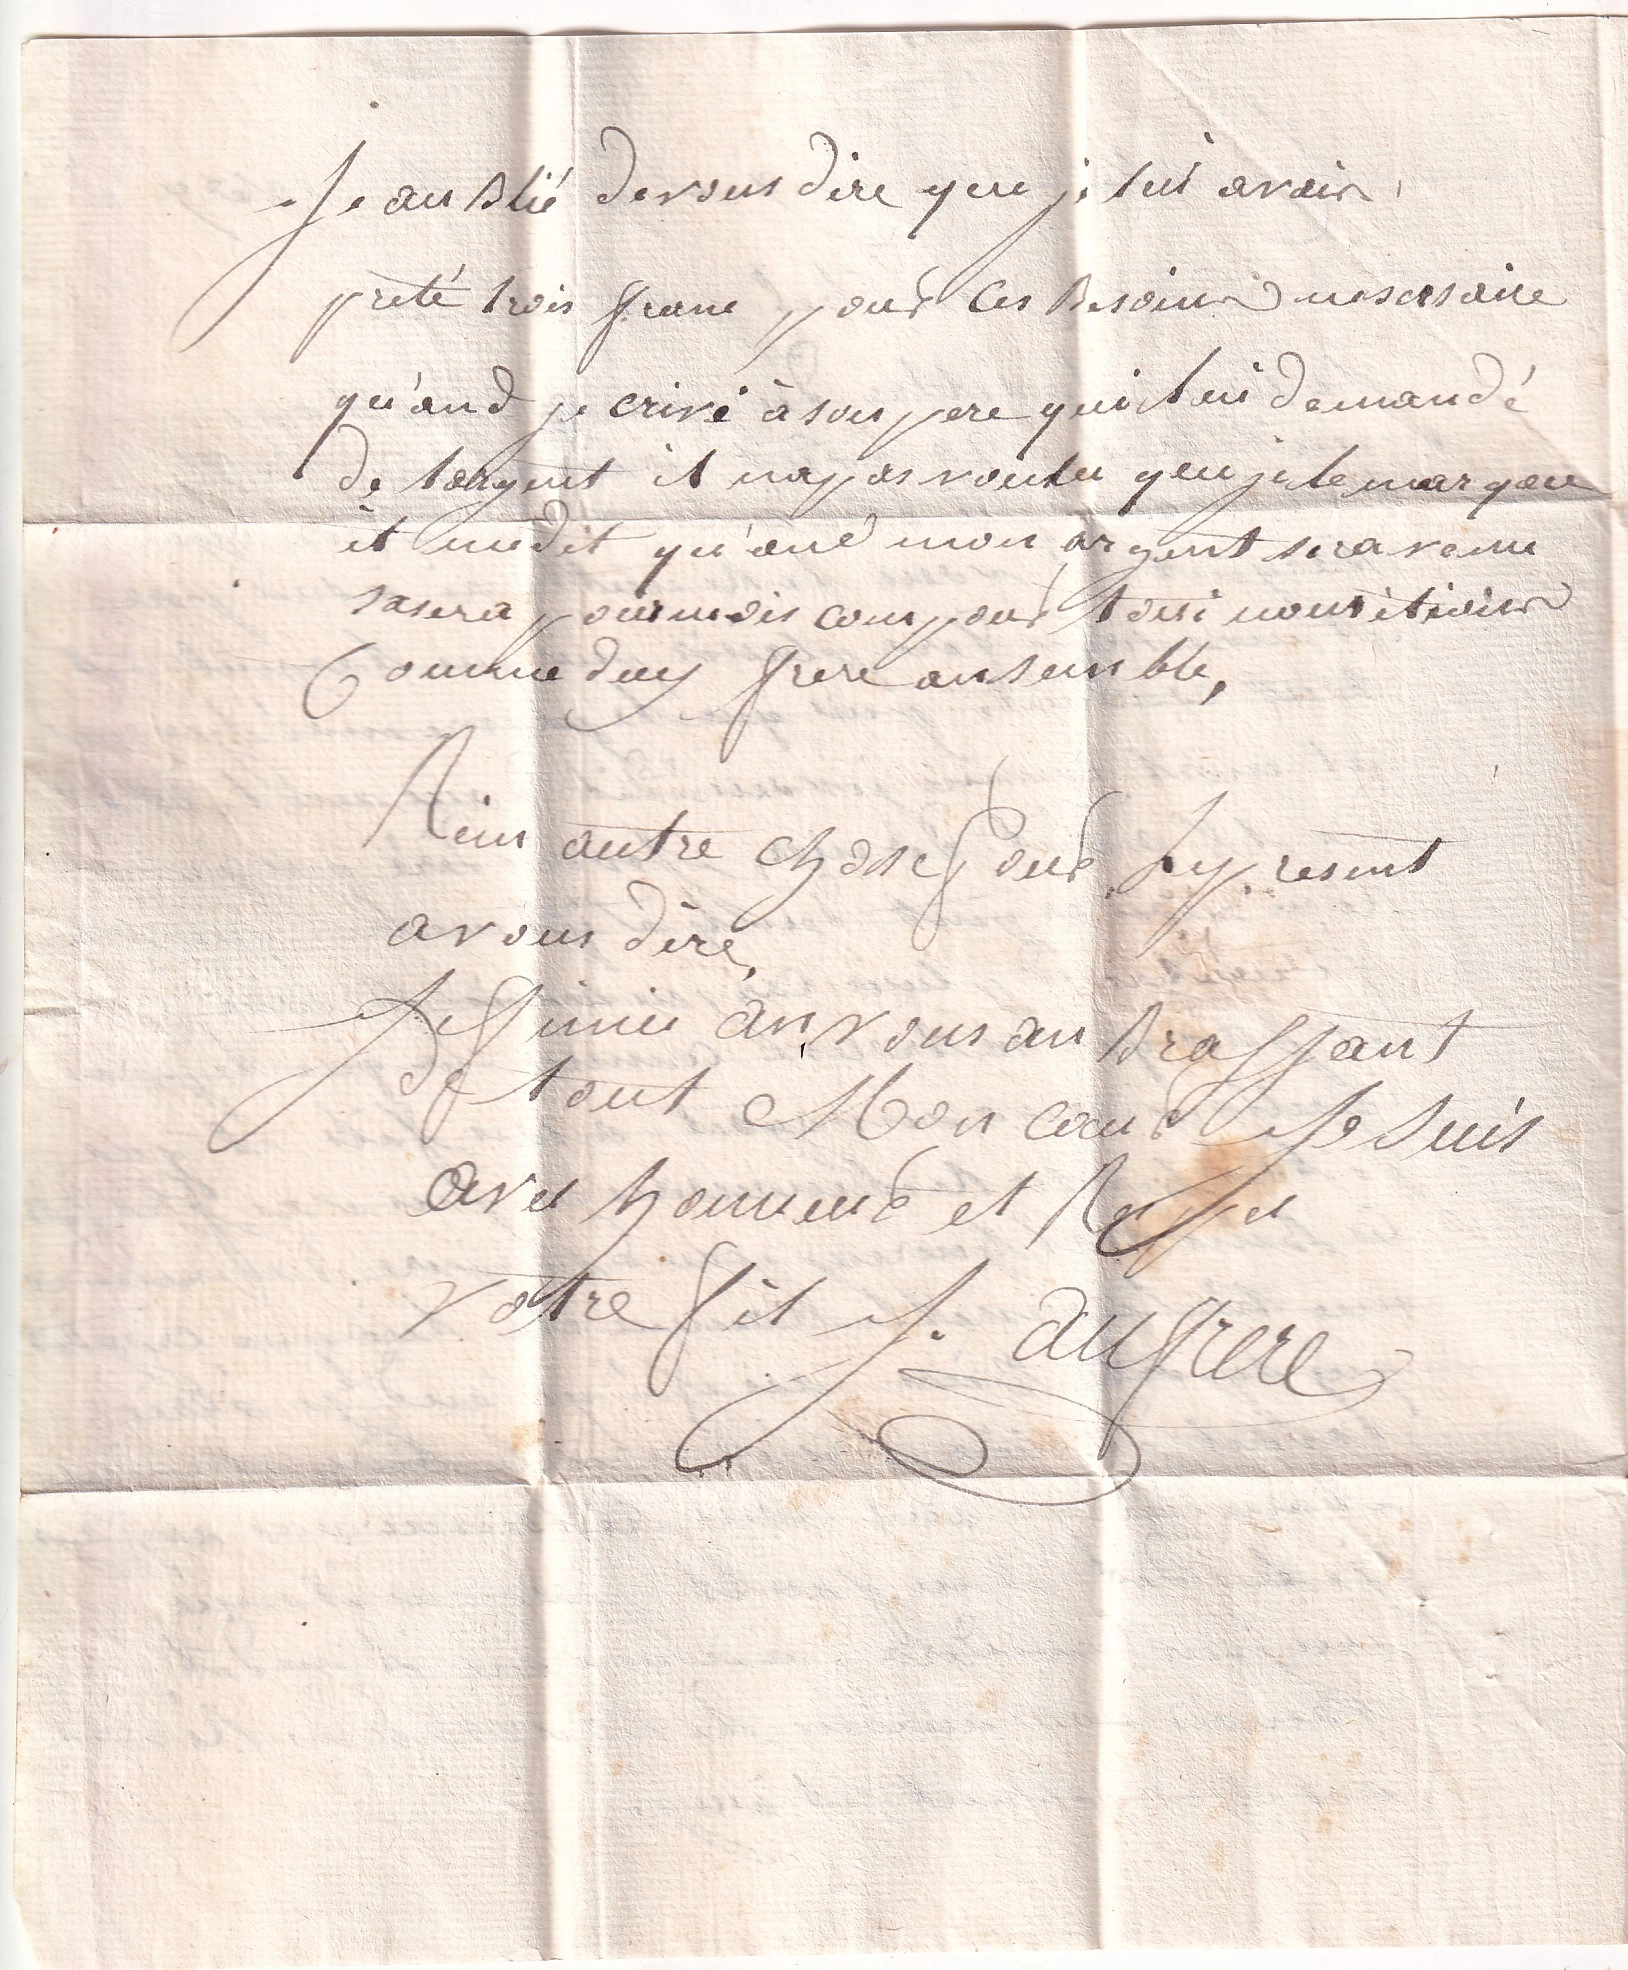 Je aublié devous dire que je lui avoir
preté trois franc pour ces Besoins nesesaire
qu'and je crivé à son pere qui lui demandé
de largent il napas voulu que je le marque
il medit qu'and mon argent sera venu
sasera pour mois com pour toui nous étions
Comme deux frere ansemble,
Rien autre chose pour le present
avous dire,
Je finie an vous anbrassant
de tout Mon coeur Je suis
avec honneur et Respec
votre fils J. aufrere